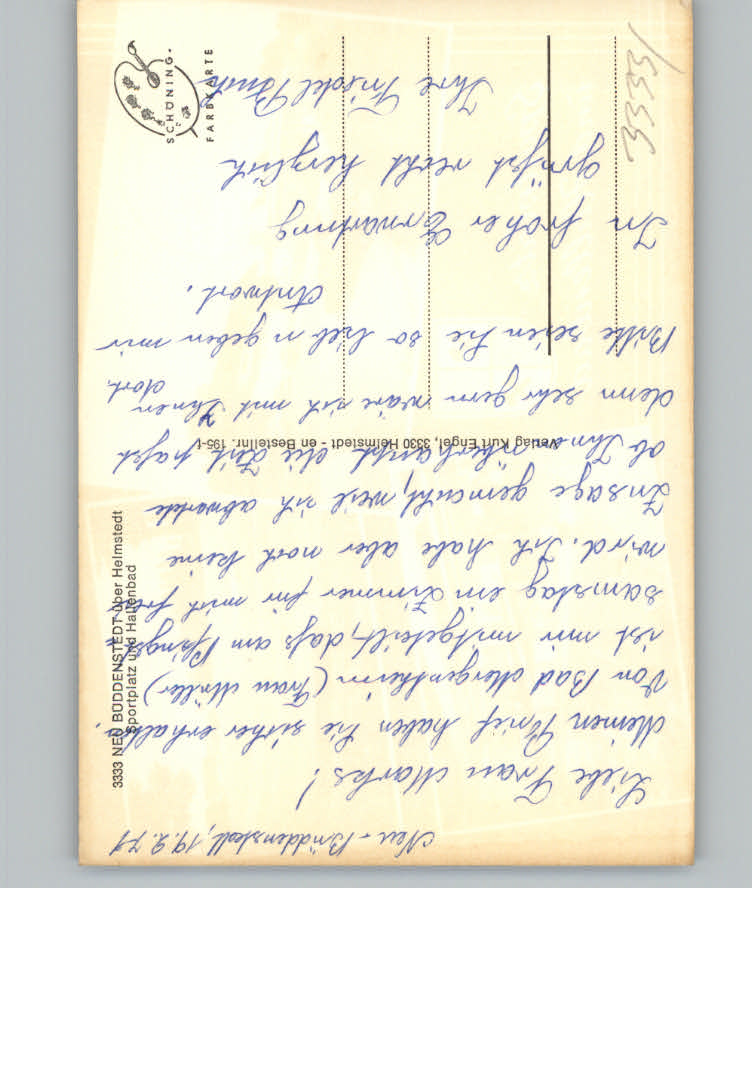 Neu-Büddenstedt, 19.2.71
Liebe Frau Marks!
Meinen Brief haben Sie sicher erhalten.
Von Bad Mergentheim (Frau Müller)
ist mir mitgeteilt, daß am Pfingst=
samstag ein Zimmer für mich frei
wird. Ich habe aber noch keine
Zusage gemacht, weil ich abwarte
ob Ihnen überhaupt die Zeit paßt
denn sehr gern wäre ich mit Ihnen
dort.
Bitte seien Sie so lieb u geben mir
Antwort.
In froher Erwartung
grüßt recht herzlich
Ihre Friedel
3333 NEU BÜDDENSTEDT über Helmstedt
Sportplatz und Hallenbad
Verlag Kurt Engel, 3330 Helmstedt - en Bestellnr. 195-t
SCHÖNING-
FARBKARTE
3333/